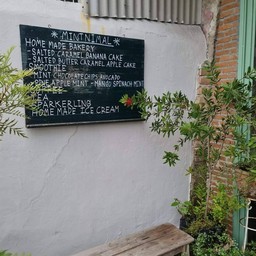 *MINTNIMAL*
HOME MADE BAKERY
- SALTED CARAMEL BANANA CAKE
- SALTED BUTTER CARAMEL APPLE CAKE
SMOOTHIE
- MINT CHOCOLATE CHIPS AVOCADO
- PINE APPLE MINT - MANGO SPINACH MINT
COFFEE
TEA
SPARKERLING
HOME MADE ICE CREAM